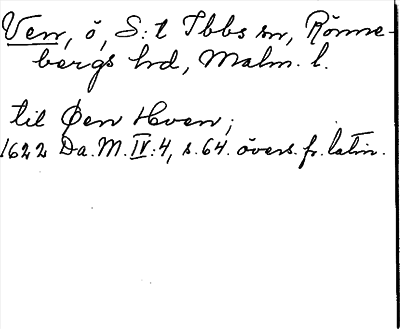 Ven, ö, S:t Ibbs sn, Rönne-
bergs hd, Malm. l.
til Øen Hven;
1622 Da. M. IV:4, s. 64. övers. fr. latin.